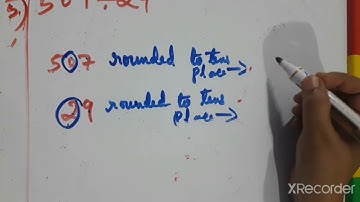 5) 507 ÷ 29
507 rounded to tens
place→
29 rounded to tens
place→
XRecorder